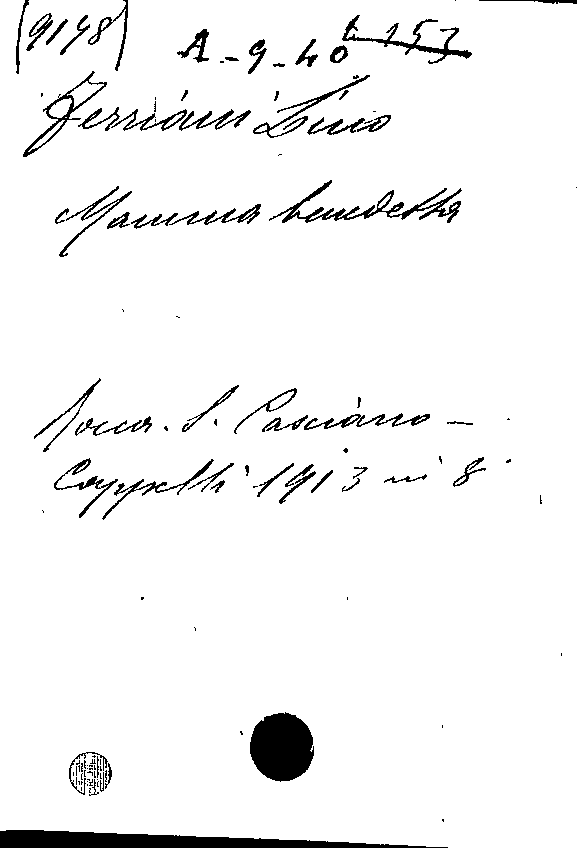 (9198)
A-9-40 153
Ferriani Lino
Mamma benedetta
Rocca S. Casciano -
Cappelli 1913 in 8°